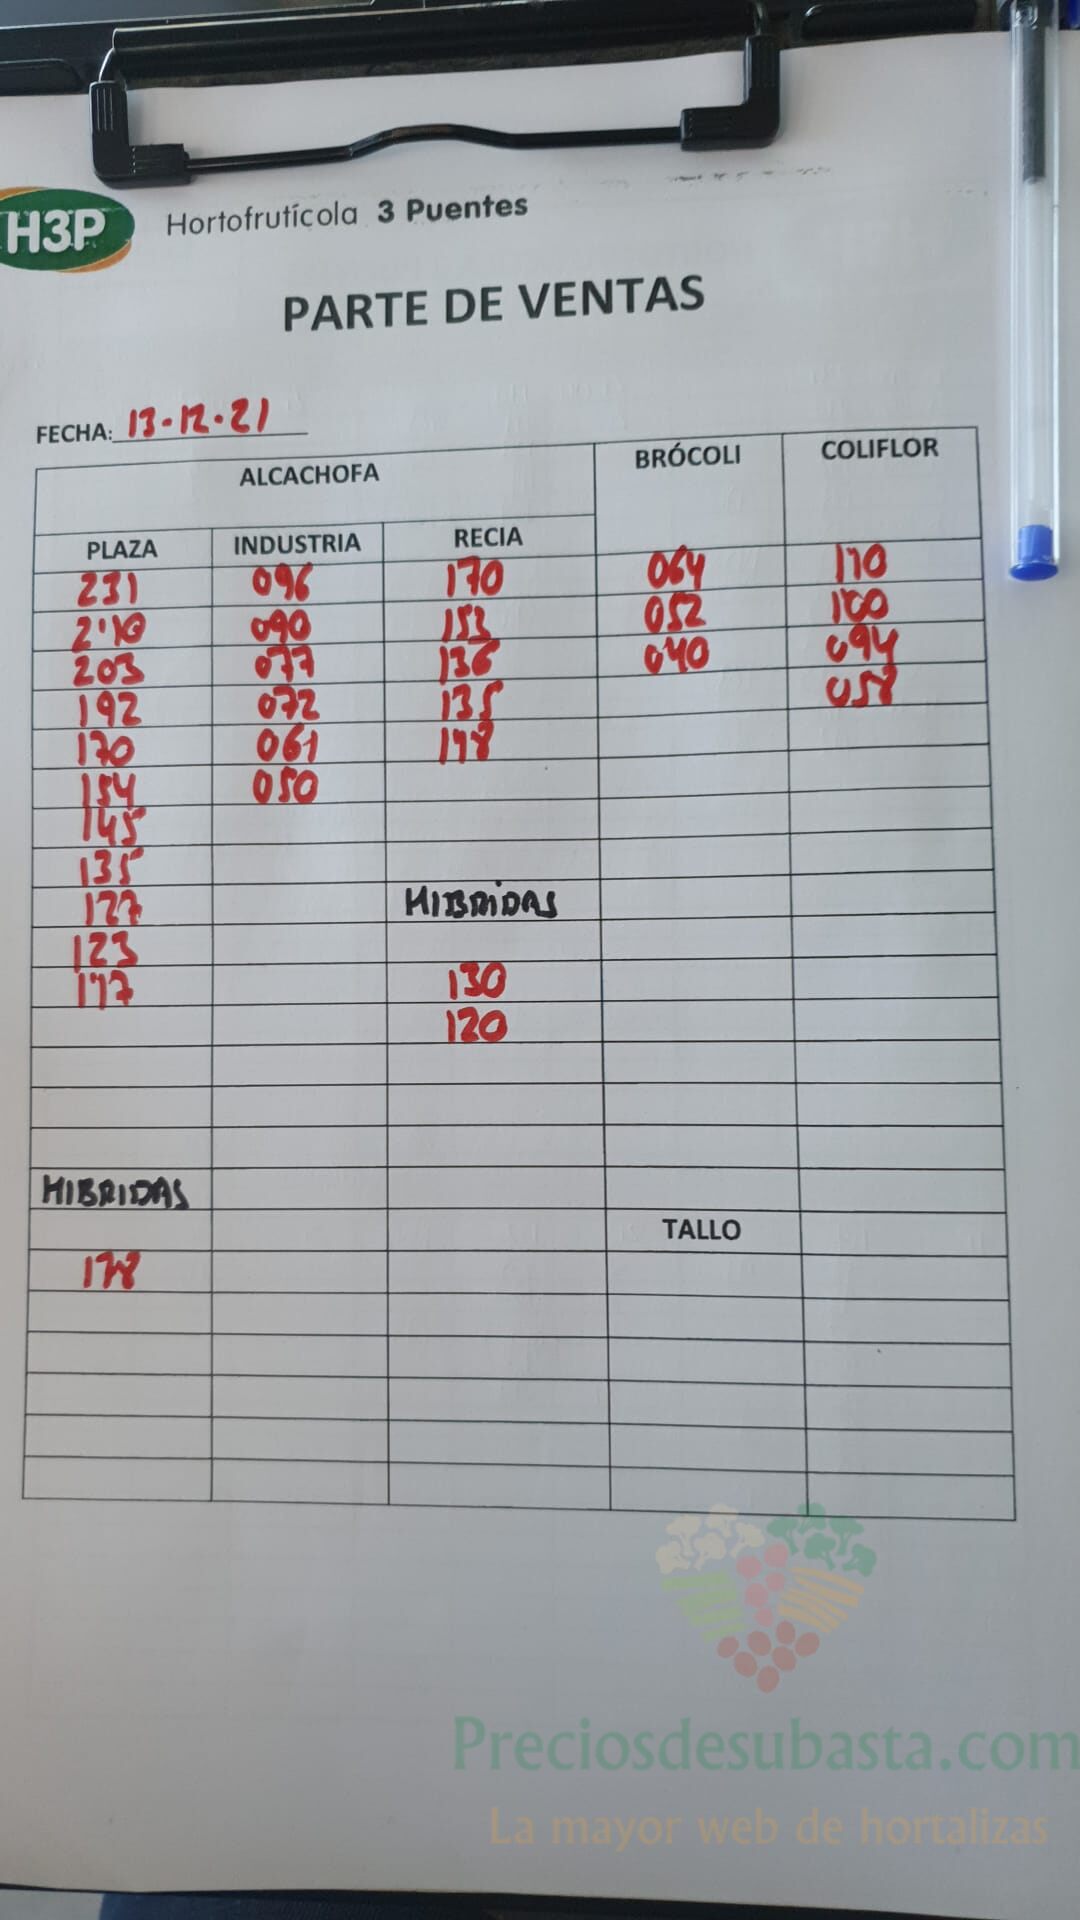 H3P Hortofrutícola 3 Puentes
PARTE DE VENTAS
FECHA: 13-12-21
ALCACHOFA BRÓCOLI COLIFLOR
PLAZA INDUSTRIA RECIA
231 096 170 064 110
2'10 090 153 052 100
203 077 136 040 094
192 072 135 058
170 061
154 050
145
135
127 HIBRIDAS
123
130
120
HIBRIDAS
TALLO
Preciosdesubasta.com
La mayor web de hortalizas